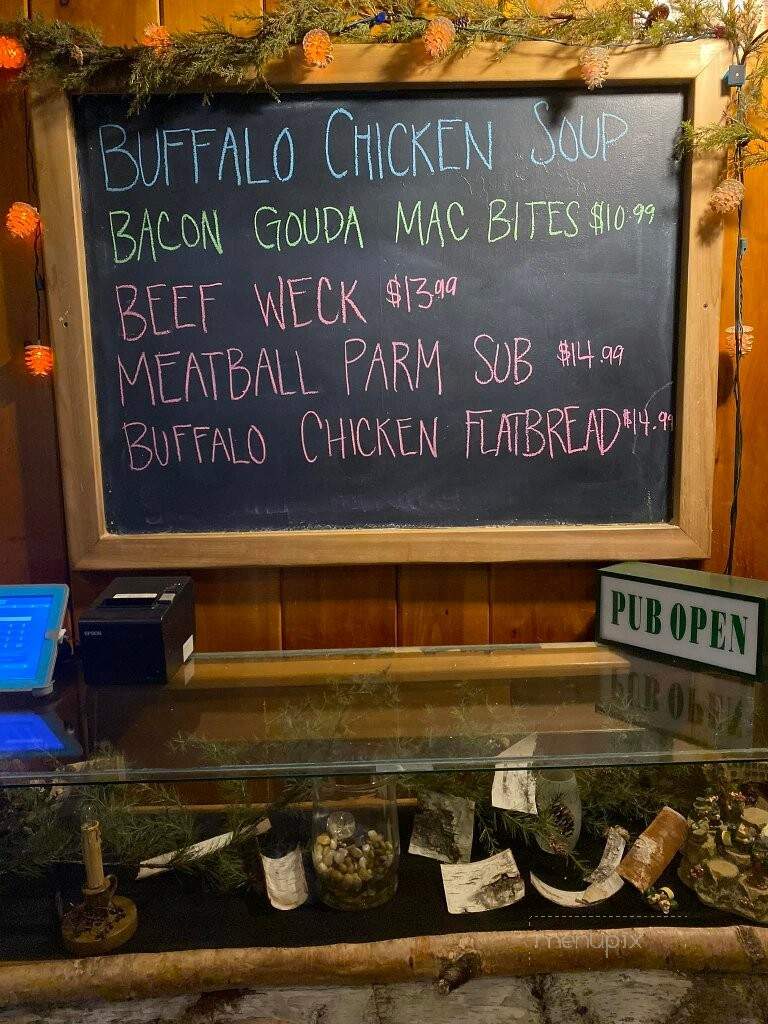 BUFFALO CHICKEN SOUP
BACON GOUDA MAC BITES $10.99
BEEF WECK $13.99
MEATBALL PARM SUB $14.99
BUFFALO CHICKEN FLATBREAD $14.99
EPSON
PUB OPEN
menupix